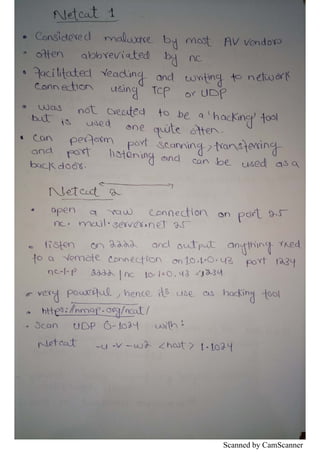 Netcat 1
• Considered malware by most AV vendors
• often abbreviated by nc
• facilitated reading and writing to network
connection using TCP or UDP
• was not created to be a 'hacking' tool
but is used one quite often.
• can perform port scanning, transferring
and port listening and can be used as a
backdoor.
Netcat 2
• open a raw connection on port 25
nc. mail.server.net 25
• listen on 2222 and output anything
to a remote connection on 10.1.0.43 port 1234
nc-l-p 2222 | nc 10.1.0.43 1234
• very powerful, hence its use as hacking tool
• https://nmap.org/ncat/
• scan UDP 0-1024 with:
Netcat -u -v -wz <host> 1-1024
Scanned by CamScanner